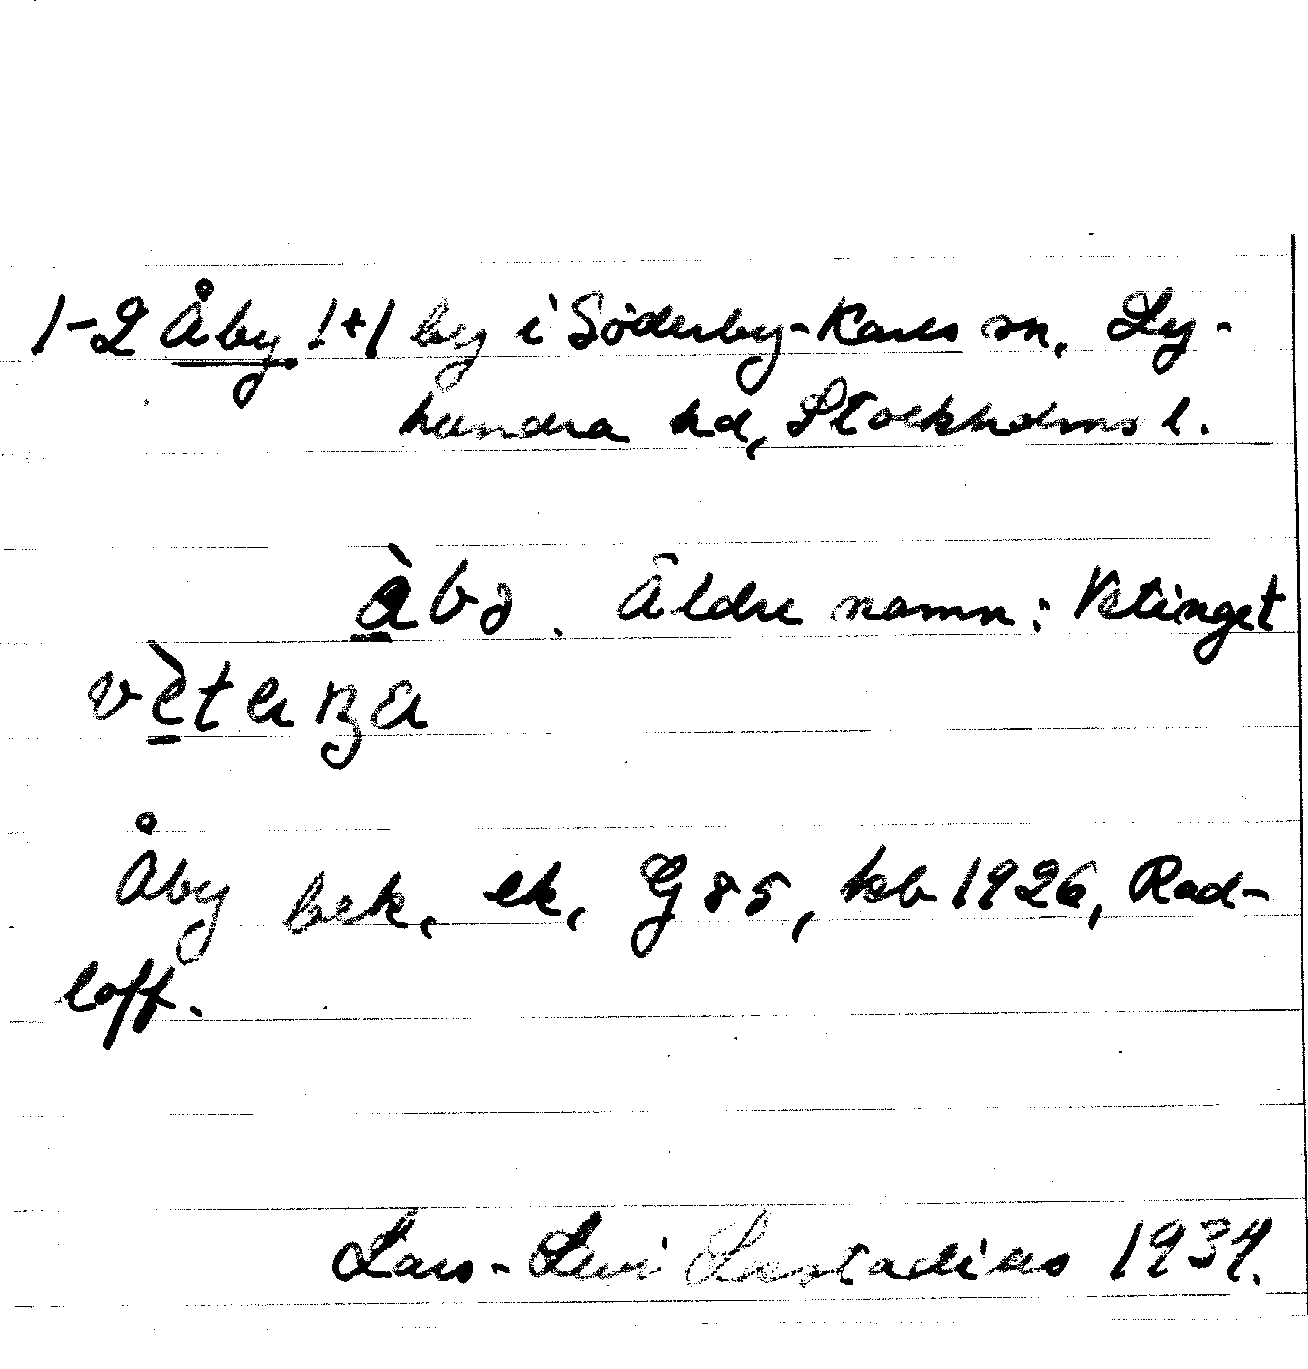 1-2 Åby 1+1 by i Söderby-Karls sn, Ly-
hundra hd, Stockholms l.
Äldre namn: Vetinget
Åby bek, ek, G 85, kb 1926, Rad-
loff.
Lars-Levi Læstadius 1934.